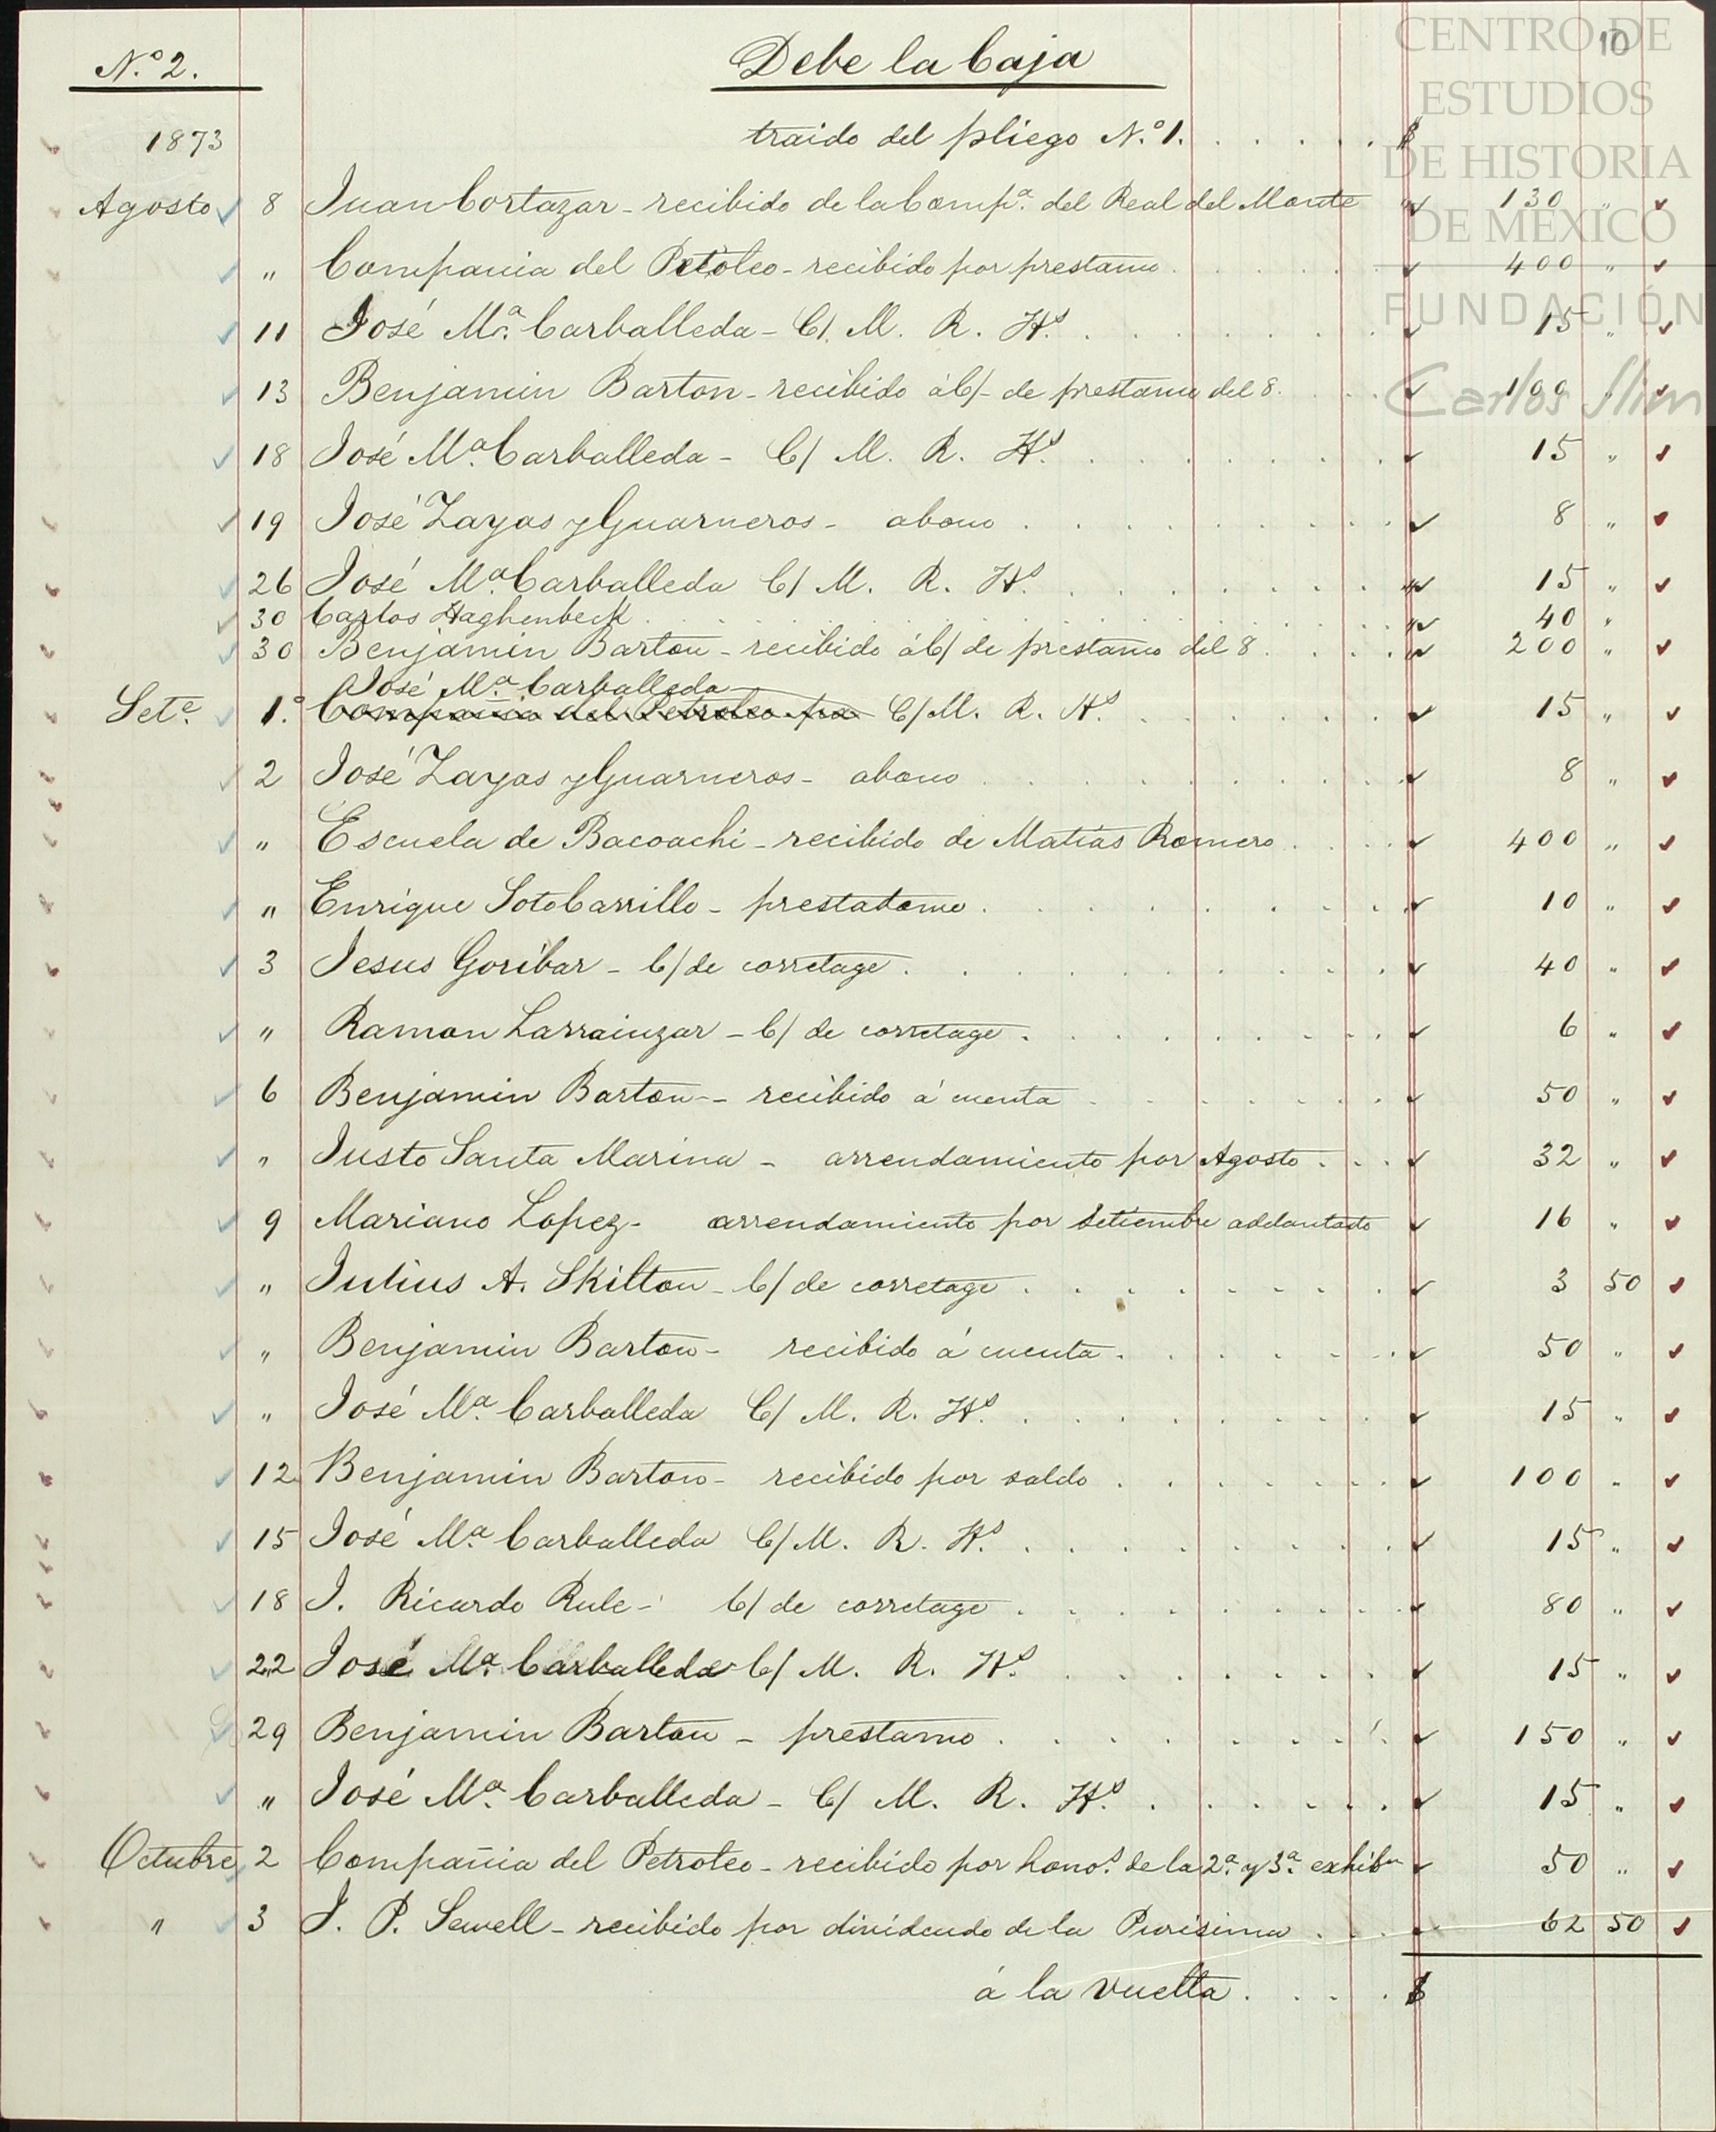 CENTRO DE
ESTUDIOS
DE HISTORIA
DE MÉXICO
FUNDACIÓN
Carlos Slim
10
N.º 2. Debe la Caja
1873 traido del pliego N.º 1. . . . . . $
Agosto 8 Juan Cortazar - recibido de la Compª. del Real del Monte " 130 "
" Compania del Petoleo - recibido por prestamo . . . . " 400 "
11 José Mª. Carballeda - C/. M. R. Hˢ. . . . . . . " 15 "
13 Benjamin Barton - recibido á C/- de prestamo del 8. . . . " 100 "
18 José Mª. Carballeda - C/ M. R. Hˢ. . . . . . . " 15 "
19 José Zayas y Guarneros - abono . . . . . . . . " 8 "
26 José Mª. Carballeda C/ M. R. Hˢ. . . . . . . " 15 "
30 Carlos Haghenbeck . . . . . . . . . " 40 "
30 Benjamin Barton - recibido á C/ de prestamo del 8 . . . . " 200 "
José Mª. Carballeda
Setᵉ. 1.º Compañia del Petroleo por C/ M. R. Hˢ. . . . . . " 15 "
2 José Zayas y Guarneros - abono . . . . . . . " 8 "
" Escuela de Bacoachi - recibido de Matías Romero . . . . " 400 "
" Enrique Soto Carrillo - prestadome . . . . . . . " 10 "
3 Jesus Goríbar - C/ de corretage . . . . . . . . " 40 "
" Ramon Larrainzar - C/ de corretage . . . . . . . " 6 "
6 Benjamin Barton -- recibido á cuenta . . . . . . . " 50 "
" Justo Santa Marina - arrendamiento por Agosto . . . " 32 "
9 Mariano Lopez - arrendamiento por Setiembre adelantado " 16 "
" Julius A. Skilton - C/ de corretage . . . . . . . " 3 50
" Benjamin Barton - recibido á cuenta . . . . . . " 50 "
" José Mª. Carballeda C/ M. R. Hˢ. . . . . . . " 15 "
12 Benjamin Barton - recibido por saldo . . . . . . " 100 "
15 José Mª. Carballeda C/ M. R. Hˢ. . . . . . . " 15 "
18 J. Ricardo Rule - C/ de corretage . . . . . . . " 80 "
22 José Mª. Carballeda C/ M. R. Hˢ. . . . . . . " 15 "
29 Benjamin Barton - prestamo . . . . . . . . " 150 "
" José Mª. Carballeda - C/ M. R. Hˢ. . . . . . . " 15 "
Octubre 2 Compañia del Petroleo - recibido por honoˢ. de la 2ª. y 3ª. exhibⁿ " 50 "
" 3 J. P. Sewell - recibido por dividendo de la Purisima . . . " 62 50
á la vuelta . . . . $